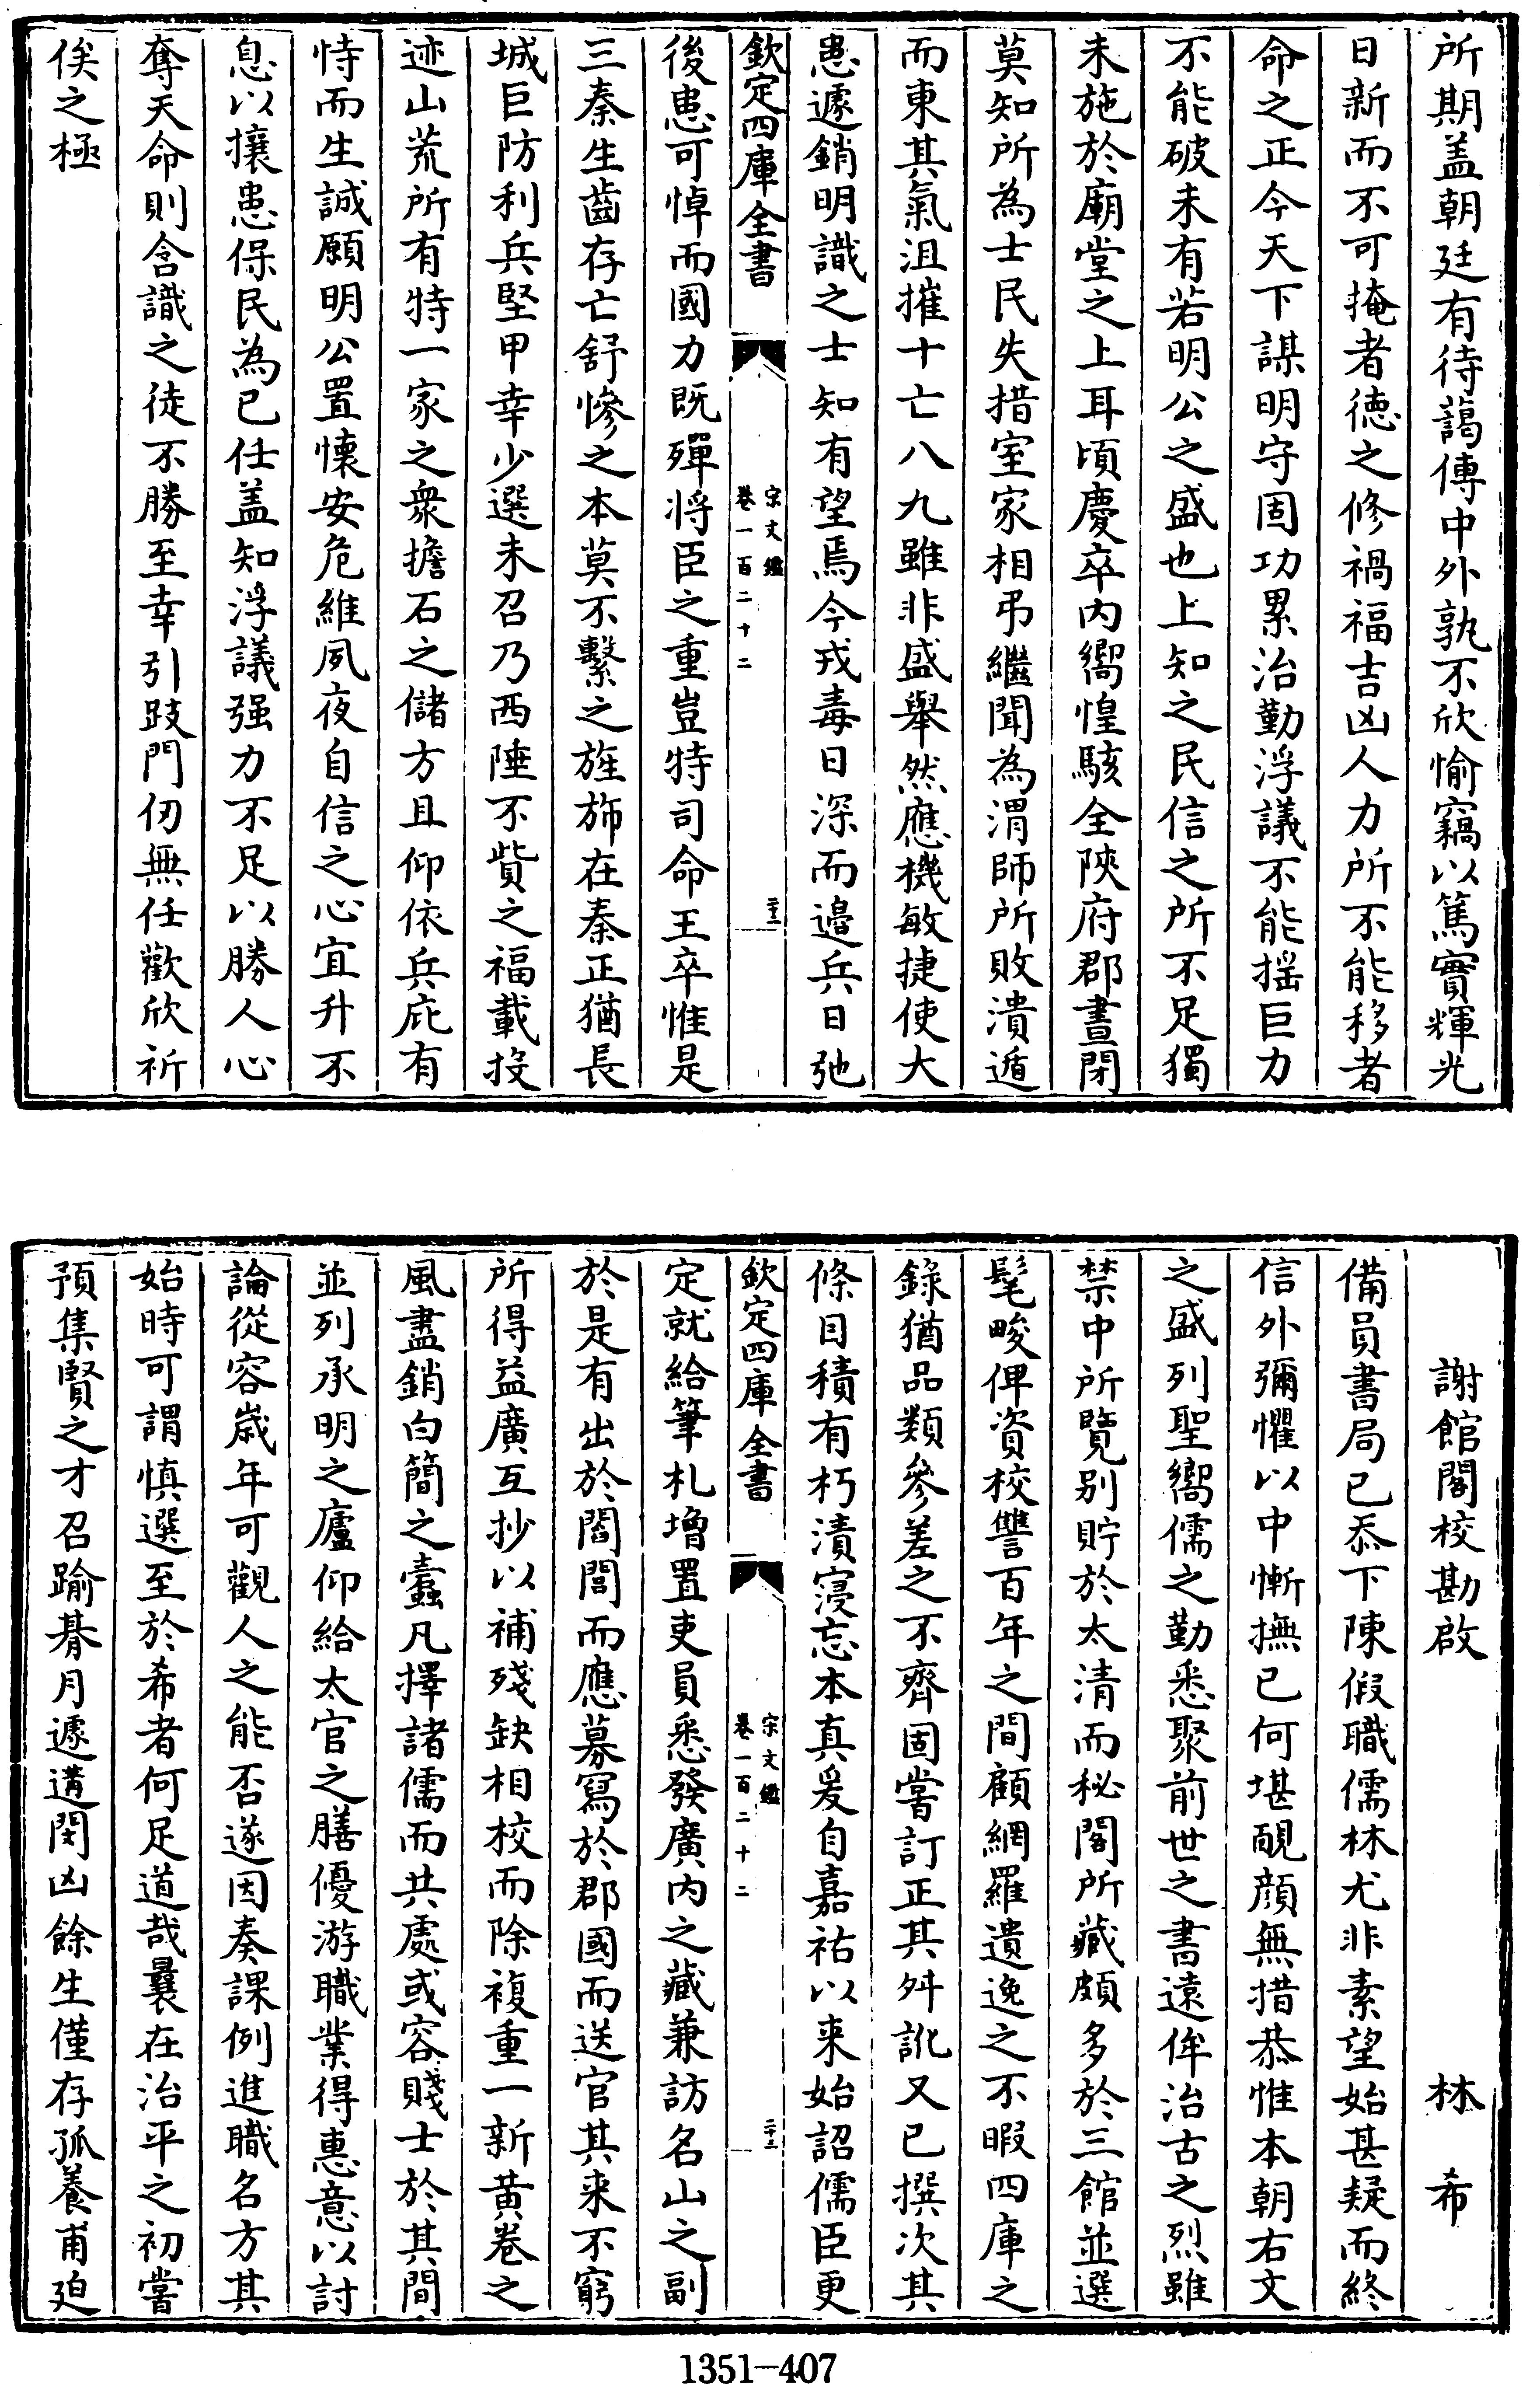 所期盖朝廷有待藹傳中外孰不欣愉竊以篤實輝光
日新而不可掩者德之修禍福吉凶人力所不能移者
命之正今天下謀明守固功累治勤浮議不能揺巨力
不能破未有若明公之盛也上知之民信之所不足獨
未施於廟堂之上耳頃慶卒内嚮惶駭全陜府郡晝閉
莫知所為士民失措室家相弔繼聞為渭師所敗潰遁
而東其氣沮摧十亡八九雖非盛舉然應機敏捷使大
患遽銷明識之士知有望焉今戎毒日深而邉兵日弛
欽定四庫全書
宋文鑑
卷一百二十二
二十三
後患可悼而國力既殫将臣之重豈特司命王卒惟是
三秦生齒存亡舒慘之本莫不繫之旌斾在秦正猶長
城巨防利兵堅甲幸少選未召乃西陲不貲之福載投
迹山荒所有特一家之衆擔石之儲方且仰依兵庇有
恃而生誠願明公置懷安危維夙夜自信之心宜升不
息以攘患保民為已任盖知浮議强力不足以勝人心
奪天命則含識之徒不勝至幸引跂門仞無任歡欣祈
俟之極
謝館閣校勘啟　林希
備員書局已忝下陳假職儒林尤非素望始甚疑而終
信外彌懼以中慚撫已何堪靦顔無措恭惟本朝右文
之盛列聖嚮儒之勤悉聚前世之書遠侔治古之烈雖
禁中所覽别貯於太清而秘閣所藏頗多於三館並選
髦畯俾資校讐百年之間顧網羅遺逸之不暇四庫之
錄猶品類參差之不齊固嘗訂正其舛訛又已撰次其
條目積有朽漬寖忘本真爰自嘉祐以来始詔儒臣更
欽定四庫全書
宋文鑑
卷一百二十二
二十三
定就給筆札增置吏員悉發廣内之藏兼訪名山之副
於是有出於閻閭而應募寫於郡國而送官其来不窮
所得益廣互抄以補殘缺相校而除複重一新黄卷之
風盡銷白簡之蠧凡擇諸儒而共處或容賤士於其間
並列承明之廬仰給太官之膳優游職業得惠意以討
論從容歲年可觀人之能否遂因奏課例進職名方其
始時可謂慎選至於希者何足道哉曩在治平之初嘗
預集賢之才召踰朞月遽遘閔凶餘生僅存孤養甫迫
1351-407